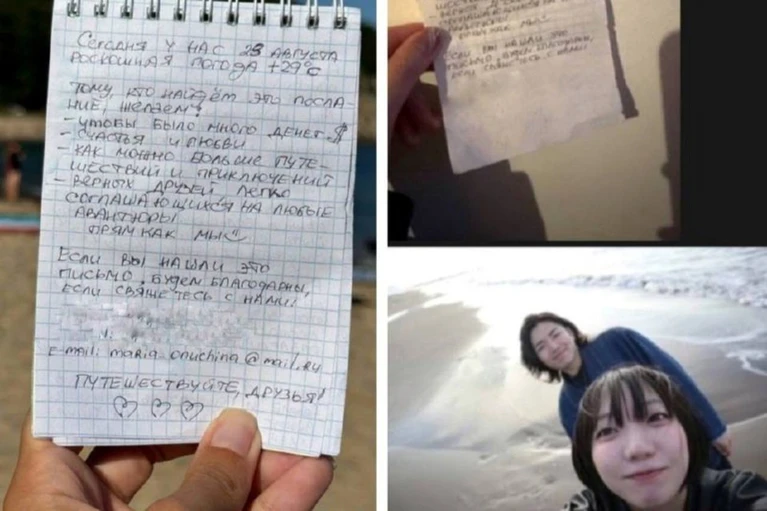 Сегодня у нас 28 августа
роскошная погода +29°C
Тому, кто найдём это посла-
ние, желаем:
- чтобы было много денег $
- счастья и любви
- как можно больше путе-
шествий и приключений
- верных друзей легко
соглашающихся на любые
авантюры
прям как мы
Если вы нашли это
письмо, будем благодарны,
если свяжетесь с нами:
e-mail: maria-onuchina@mail.ru
Путешествуйте, друзья!
шествий и приключений
- верных друзей
соглашающихся на
прям как мы
Если вы нашли это
письмо, будем благодарны,
если свяжетесь с нами